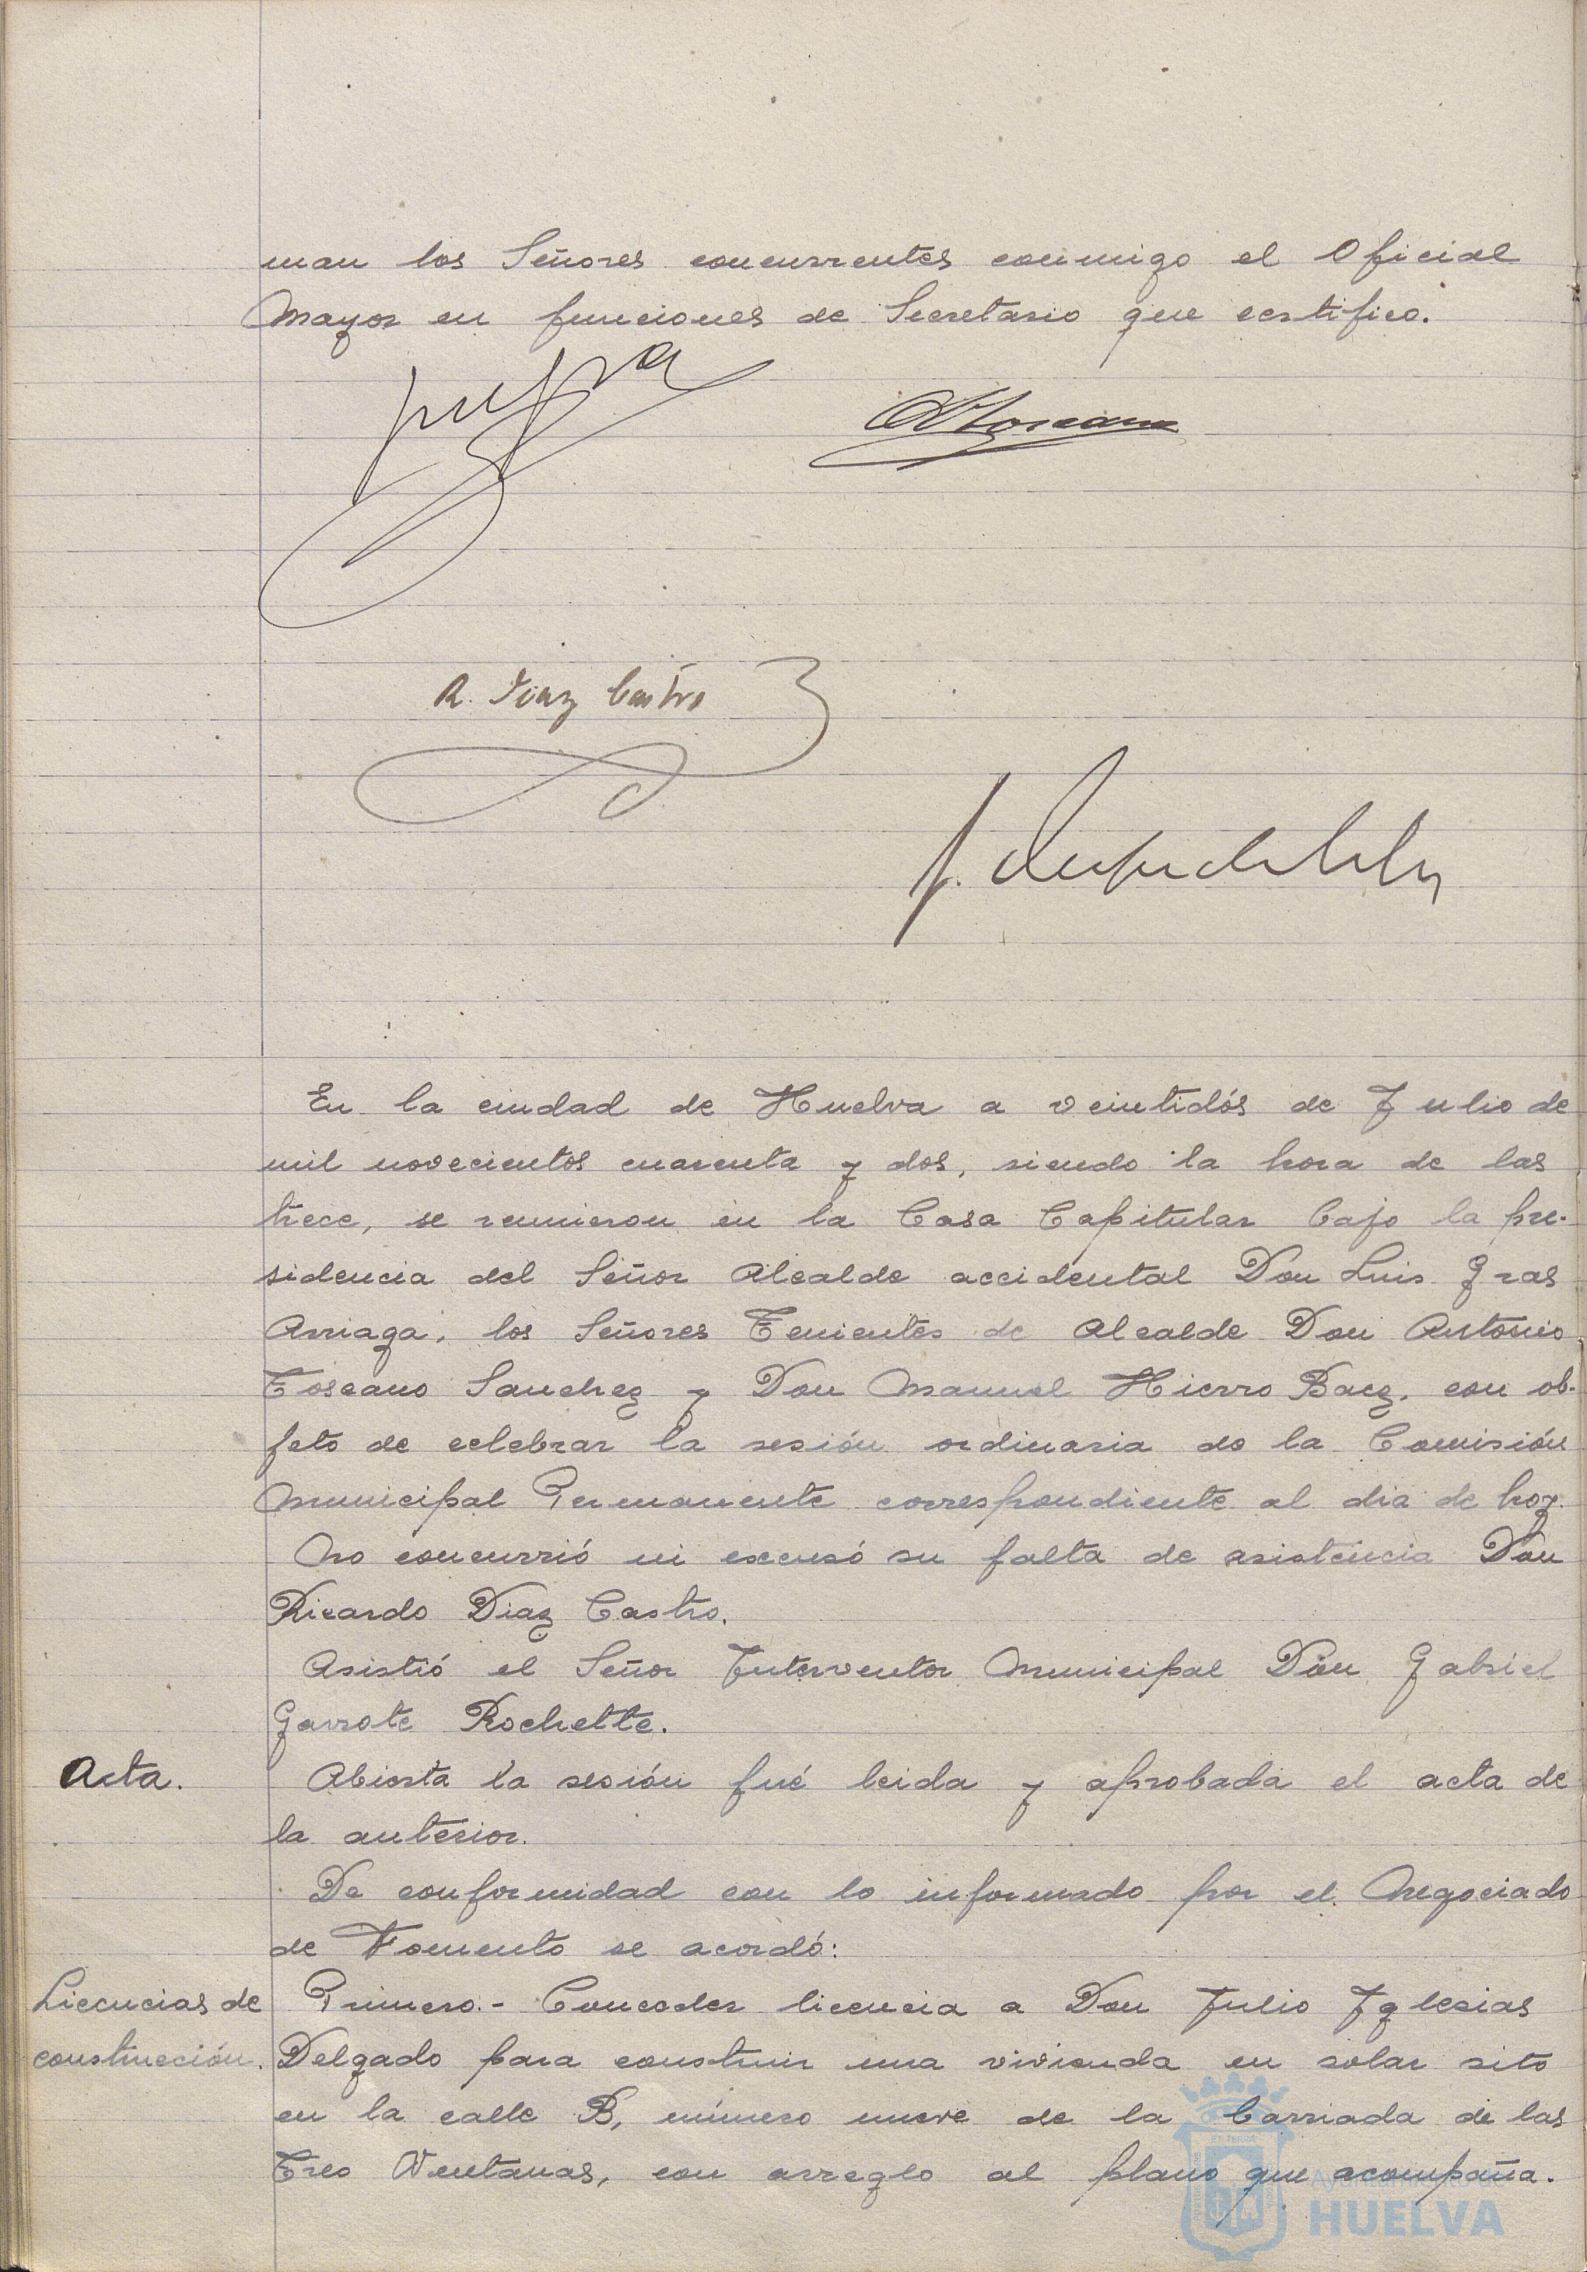 man los Señores concurrentes conmigo el Oficial
Mayor en funciones de Secretario que certifico.
A Toscano
R. Diaz Castro
En la ciudad de Huelva a veintidós de Julio de
mil novecientos cuarenta y dos, siendo la hora de las
trece, se reunieron en la Casa Capitular bajo la pre-
sidencia del Señor Alcalde accidental Don Luis Gras
Arriaga, los Señores Tenientes de Alcalde Don Antonio
Toscano Sanchez y Don Manuel Hierro Baez, con ob-
jeto de celebrar la sesión ordinaria de la Comisión
Municipal Permanente correspondiente al dia de hoy.
No concurrió ni escusó su falta de asistencia Don
Ricardo Diaz Castro.
Asistió el Señor Interventor Municipal Don Gabriel
Garrote Rochette.
Acta.
Abierta la sesión fué leida y aprobada el acta de
la anterior.
De conformidad con lo informado por el Negociado
de Fomento se acordó:
Licencias de
construcción.
Primero.- Conceder licencia a Don Julio Yglesias
Delgado para construir una vivienda en solar sito
en la calle B, número nueve de la barriada de las
Tres Ventanas, con arreglo al plano que acompaña.
Ayuntamiento de
HUELVA